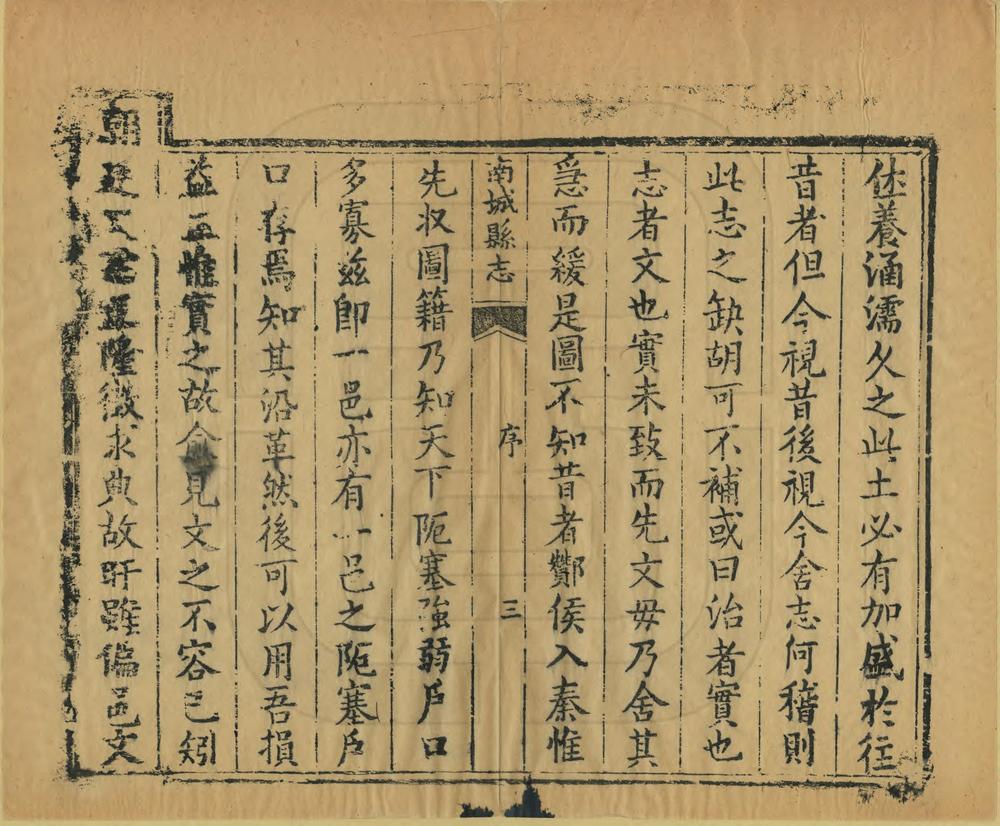 休養涵濡久之此土必有加盛於往
昔者但今視昔後視今舍志何稽則
此志之缺胡可不補或曰治者實也
志者文也實未致而先文毋乃舍其
急而緩是圖不知昔者酇侯入秦惟
南城縣志
序
三
先收圖籍乃知天下阨塞強弱戶口
多寡茲即一邑亦有一邑之阨塞戶
口存焉知其沿革然後可以用吾損
益正惟實之故僉見文之不容已矧
朝廷文治 隆徵求典故盱雖偏邑文